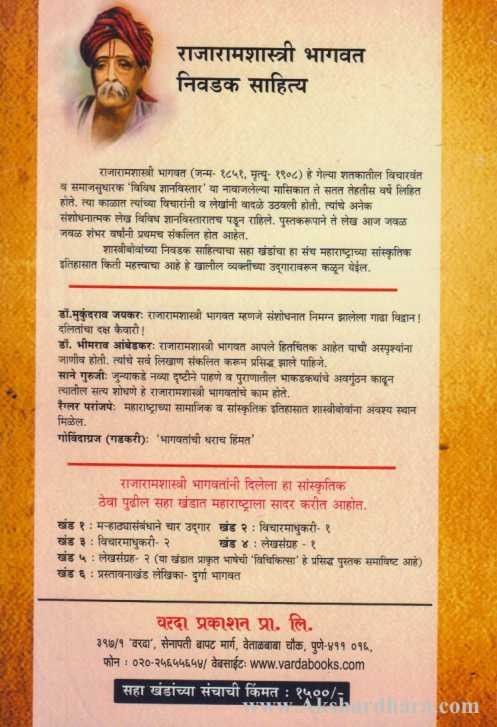 राजारामशास्त्री भागवत
निवडक साहित्य
राजारामशास्त्री भागवत (जन्म- १८५१, मृत्यू- १९०८) हे गेल्या शतकातील विचारवंत
व समाजसुधारक 'विविध ज्ञानविस्तार' या नावाजलेल्या मासिकात ते सतत तेहतीस वर्षे लिहित
होते. त्या काळात त्यांच्या विचारांनी व लेखांनी वादळे उठवली होती. त्यांचे अनेक
संशोधनात्मक लेख विविध ज्ञानविस्तारातच पडून राहिले. पुस्तकरूपाने ते लेख आज जवळ
जवळ शंभर वर्षांनी प्रथमच संकलित होत आहेत.
शास्त्रीबोवांच्या निवडक साहित्याचा सहा खंडांचा हा संच महाराष्ट्राच्या सांस्कृतिक
इतिहासात किती महत्त्वाचा आहे हे खालील व्यक्तींच्या उद्‌गारावरून कळून येईल.
डॉ.मुकुंदराव जयकर: राजारामशास्त्री भागवत म्हणजे संशोधनात निमग्न झालेला गाढा विद्वान!
दलितांचा दक्ष कैवारी!
डॉ. भीमराव आंबेडकर: राजारामशास्त्री भागवत आपले हितचिंतक आहेत याची अस्पृश्यांना
जाणीव होती. त्यांचे सर्व लिखाण संकलित करून प्रसिद्ध झाले पाहिजे.
साने गुरुजी: जुन्याकडे नव्या दृष्टीने पाहणे व पुराणातील भाकडकथांचे अवगुंठन काढून
त्यातील सत्य शोधणे हे राजारामशास्त्री भागवतांचे काम होते.
रँग्लर परांजपे: महाराष्ट्राच्या सामाजिक व सांस्कृतिक इतिहासात शास्त्रीबोवांना अवश्य स्थान
मिळेल.
गोविंदाग्रज (गडकरी): 'भागवतांची धराच हिंमत'
राजारामशास्त्री भागवतांनी दिलेला हा सांस्कृतिक
ठेवा पुढील सहा खंडात महाराष्ट्राला सादर करीत आहोत.
खंड १ : मऱ्हाठ्यासंबंधाने चार उद्‌गार खंड २ : विचारमाधुकरी- १
खंड ३ : विचारमाधुकरी- २ खंड ४ : लेखसंग्रह - १
खंड ५ : लेखसंग्रह- २ (या खंडात प्राकृत भाषेची 'विचिकित्सा' हे प्रसिद्ध पुस्तक समाविष्ट आहे)
खंड ६ : प्रस्तावनाखंड लेखिका- दुर्गा भागवत
वरदा प्रकाशन प्रा. लि.
३९७/१ 'वरदा', सेनापती बापट मार्ग, वेताळबाबा चौक, पुणे-४११ ०१६,
फोन : ०२०-२५६५५६५४/ वेबसाईट: www.vardabooks.com
सहा खंडांच्या संचाची किंमत : १५००/-
www.Akshardhara.com